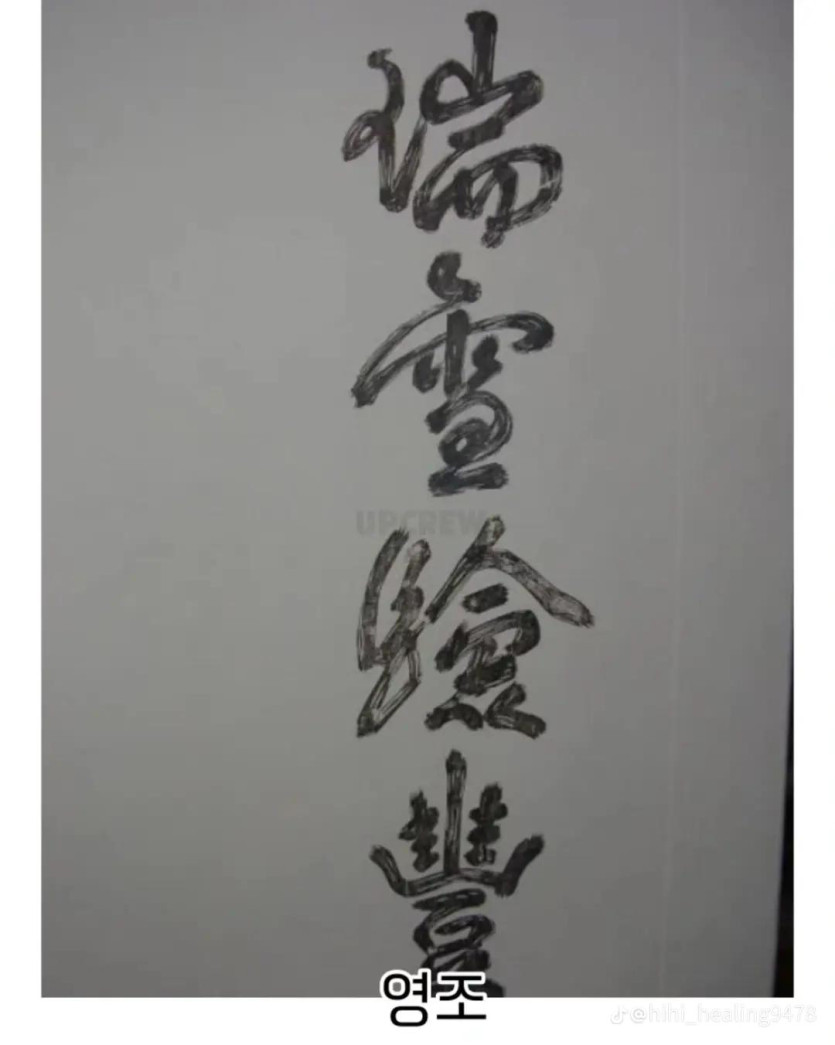 瑞
雪
驗
豐
UPCREW
영조
@hihi_healing9478